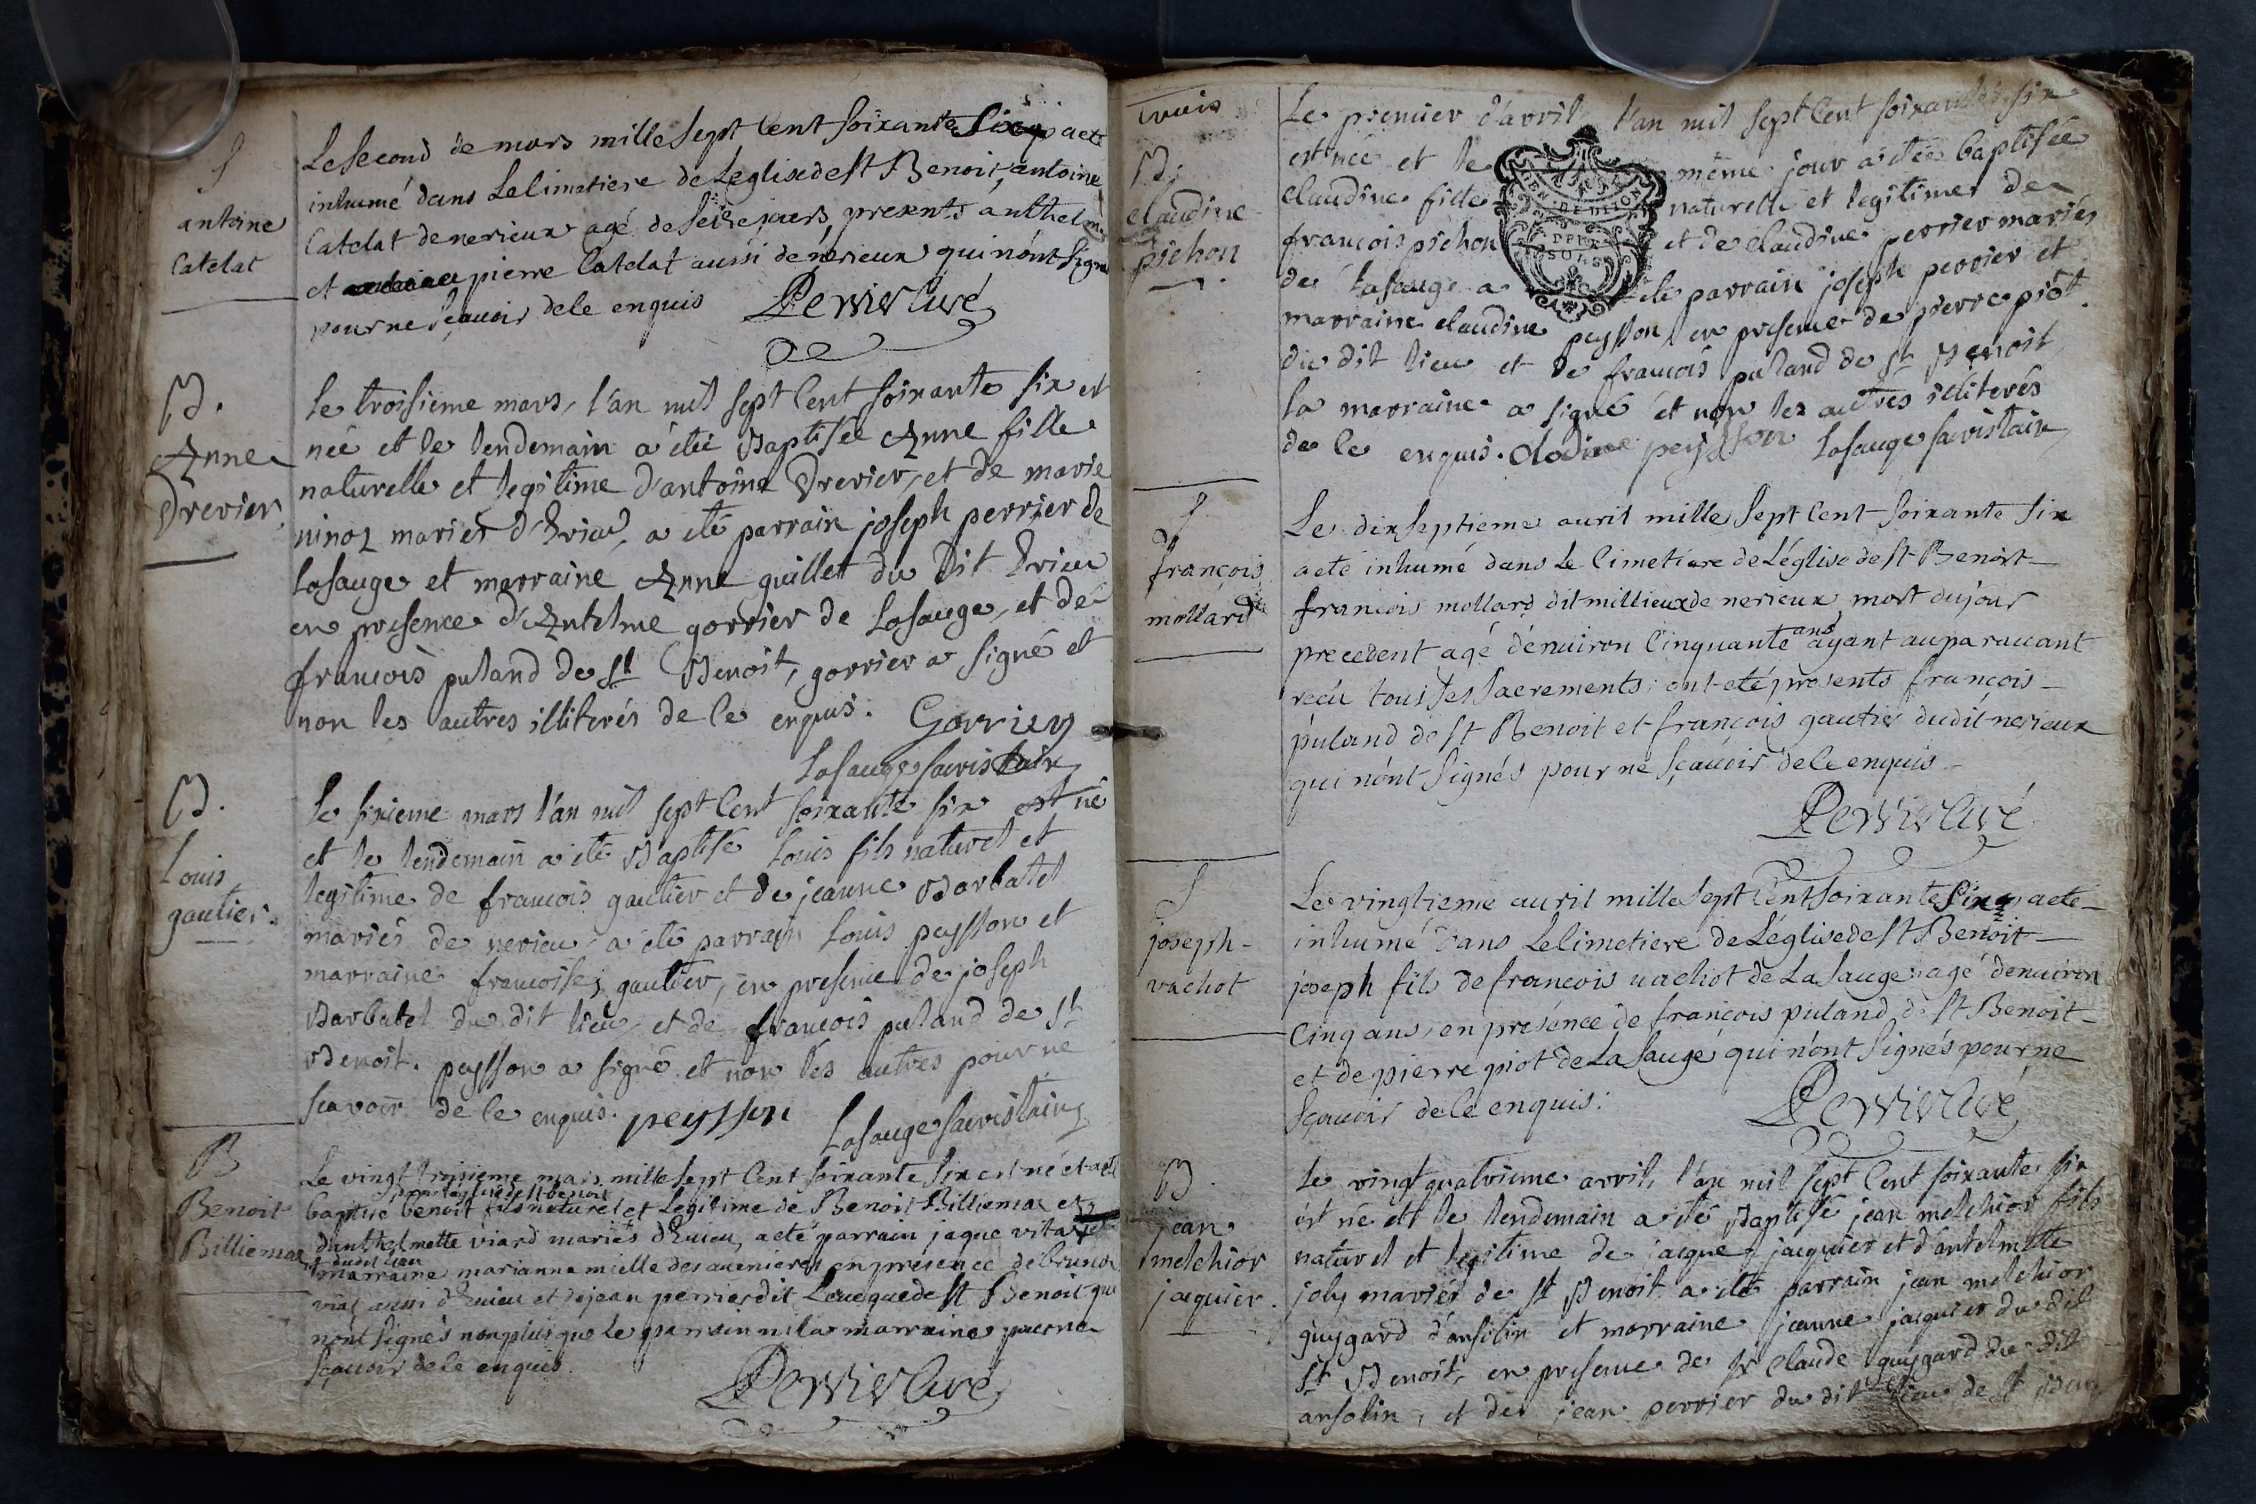 S
antoine
Catelat
Le second de mars mille sept Cent soixante six a eté
inhumé dans Le Cimetiere de Leglise de st Benoit, antoine
Catelat de nerieux agé de seize jours, presents anthelme
et pierre Catelat aussi de nerieux qui n'ónt signé
pour ne sçauoir de le enquis Perrier Curé
B.
Anne
Drevier
Le troisieme mars, l'an mil sept Cent soixante six est
neé et le lendemain a été Baptisée Anne fille
naturelle et legitime d'antoine Drevier, et de marie
ninoz mariés d'Evieu, a été parrain joseph perrier de
Lasauge et marraine Anne guillet du dit Evieu
en presence d'Antelme gorrier de Lasauge, et de
françois puland de st Benoit, gorrier a signé et
non les autres illiterés de Ce enquis. Gorrier
Lasauge sacristain
B.
Louis
gautier.
Le sixieme mars l'an mil sept Cent soixante six est né
et le lendemain a été Baptisé Louis fils naturel et
legitime de francois gautier et de jeanne Barbatel
mariés de nerieu, a été parrain Louis peysson et
marraine francoise gautier, en presence de joseph
Barbatel du dit lieu, et de françois puland de st
Benoit. peysson a signé et non les autres pour ne
scavoir de le enquis. peysson
Lasauge sacristain
B
Benoit
Billiemaz
Le vingt troisieme mars mille sept Cent soixante six est né et a eté
baptisé benoit fils naturel et Legitime de Benoit Billiemaz et
d'anthelmette viard mariés d'Euieu, a eté parrain jaque vital
et dudit lieu
marraine marianne mielle des auenieres en presence de bruno
vial aussi d'Euieu et de jean perrier dit Leueque de st Benoit qui
n'ónt signés non plus que le parrain ni la marraine pour ne
sçauoir de le enquis.
Perrier Curé
trois
B.
claudine
pichon
Le premier d'avril, l'an mil sept Cent soixante six
est neé et le même jour a été baptisée
claudine fille naturelle et legitime de
françois pichon et de claudine perrier mariés
de Lasauge a été parrain joseph perrier et
marraine claudine peysson, en presence de pierre piót
du dit lieu et de françois puland de st Benoit
la marraine a signé et non les autres illiterés
de Ce enquis. clodine peysson Lasauge sacristain
S
françois
mollard
Le dixseptieme auril mille sept Cent soixante six
a eté inhumé dans Le Cimetiere de L'église de st Benoit
francois mollard dit millieux de nerieux mort du jour
precedent agé d'énuiron Cinquante ans ayant auparauant
reçu tous les sacrements; ont eté presents françois
puland de st Benoit et françois gautier dudit nerieux
qui n'ónt signés pour ne sçauoir de le enquis
Perrier Curé
S
joseph
vachot
Le vingtieme auril mille sept Cent soixante six a eté
inhumé dans Le Cimetiere de L'église de st Benoit
joseph fils de francois uachot de La sauge agé d'enuiron
Cinq ans, en présence de francois puland de st Benoit
et de pierre piot de La sauge qui n'ónt signés pour ne
sçauoir de le enquis. Perrier Curé
B.
jean
melchior
jaquier.
Le vingt quatrieme avril, l'an mil sept Cent soixante six
est né et le lendemain a été Baptisé jean melchior fils
naturel et legitime de jacque jacquier et d'antelmette
joly mariés de st Benoit a été parrain jean melchior
guygard d'ansolin et marraine jeanne jacquier du dit
st Benoit, en presence de sr claude guygard du dit
ansolin, et de jean perrier du dit lieu de st Benoit